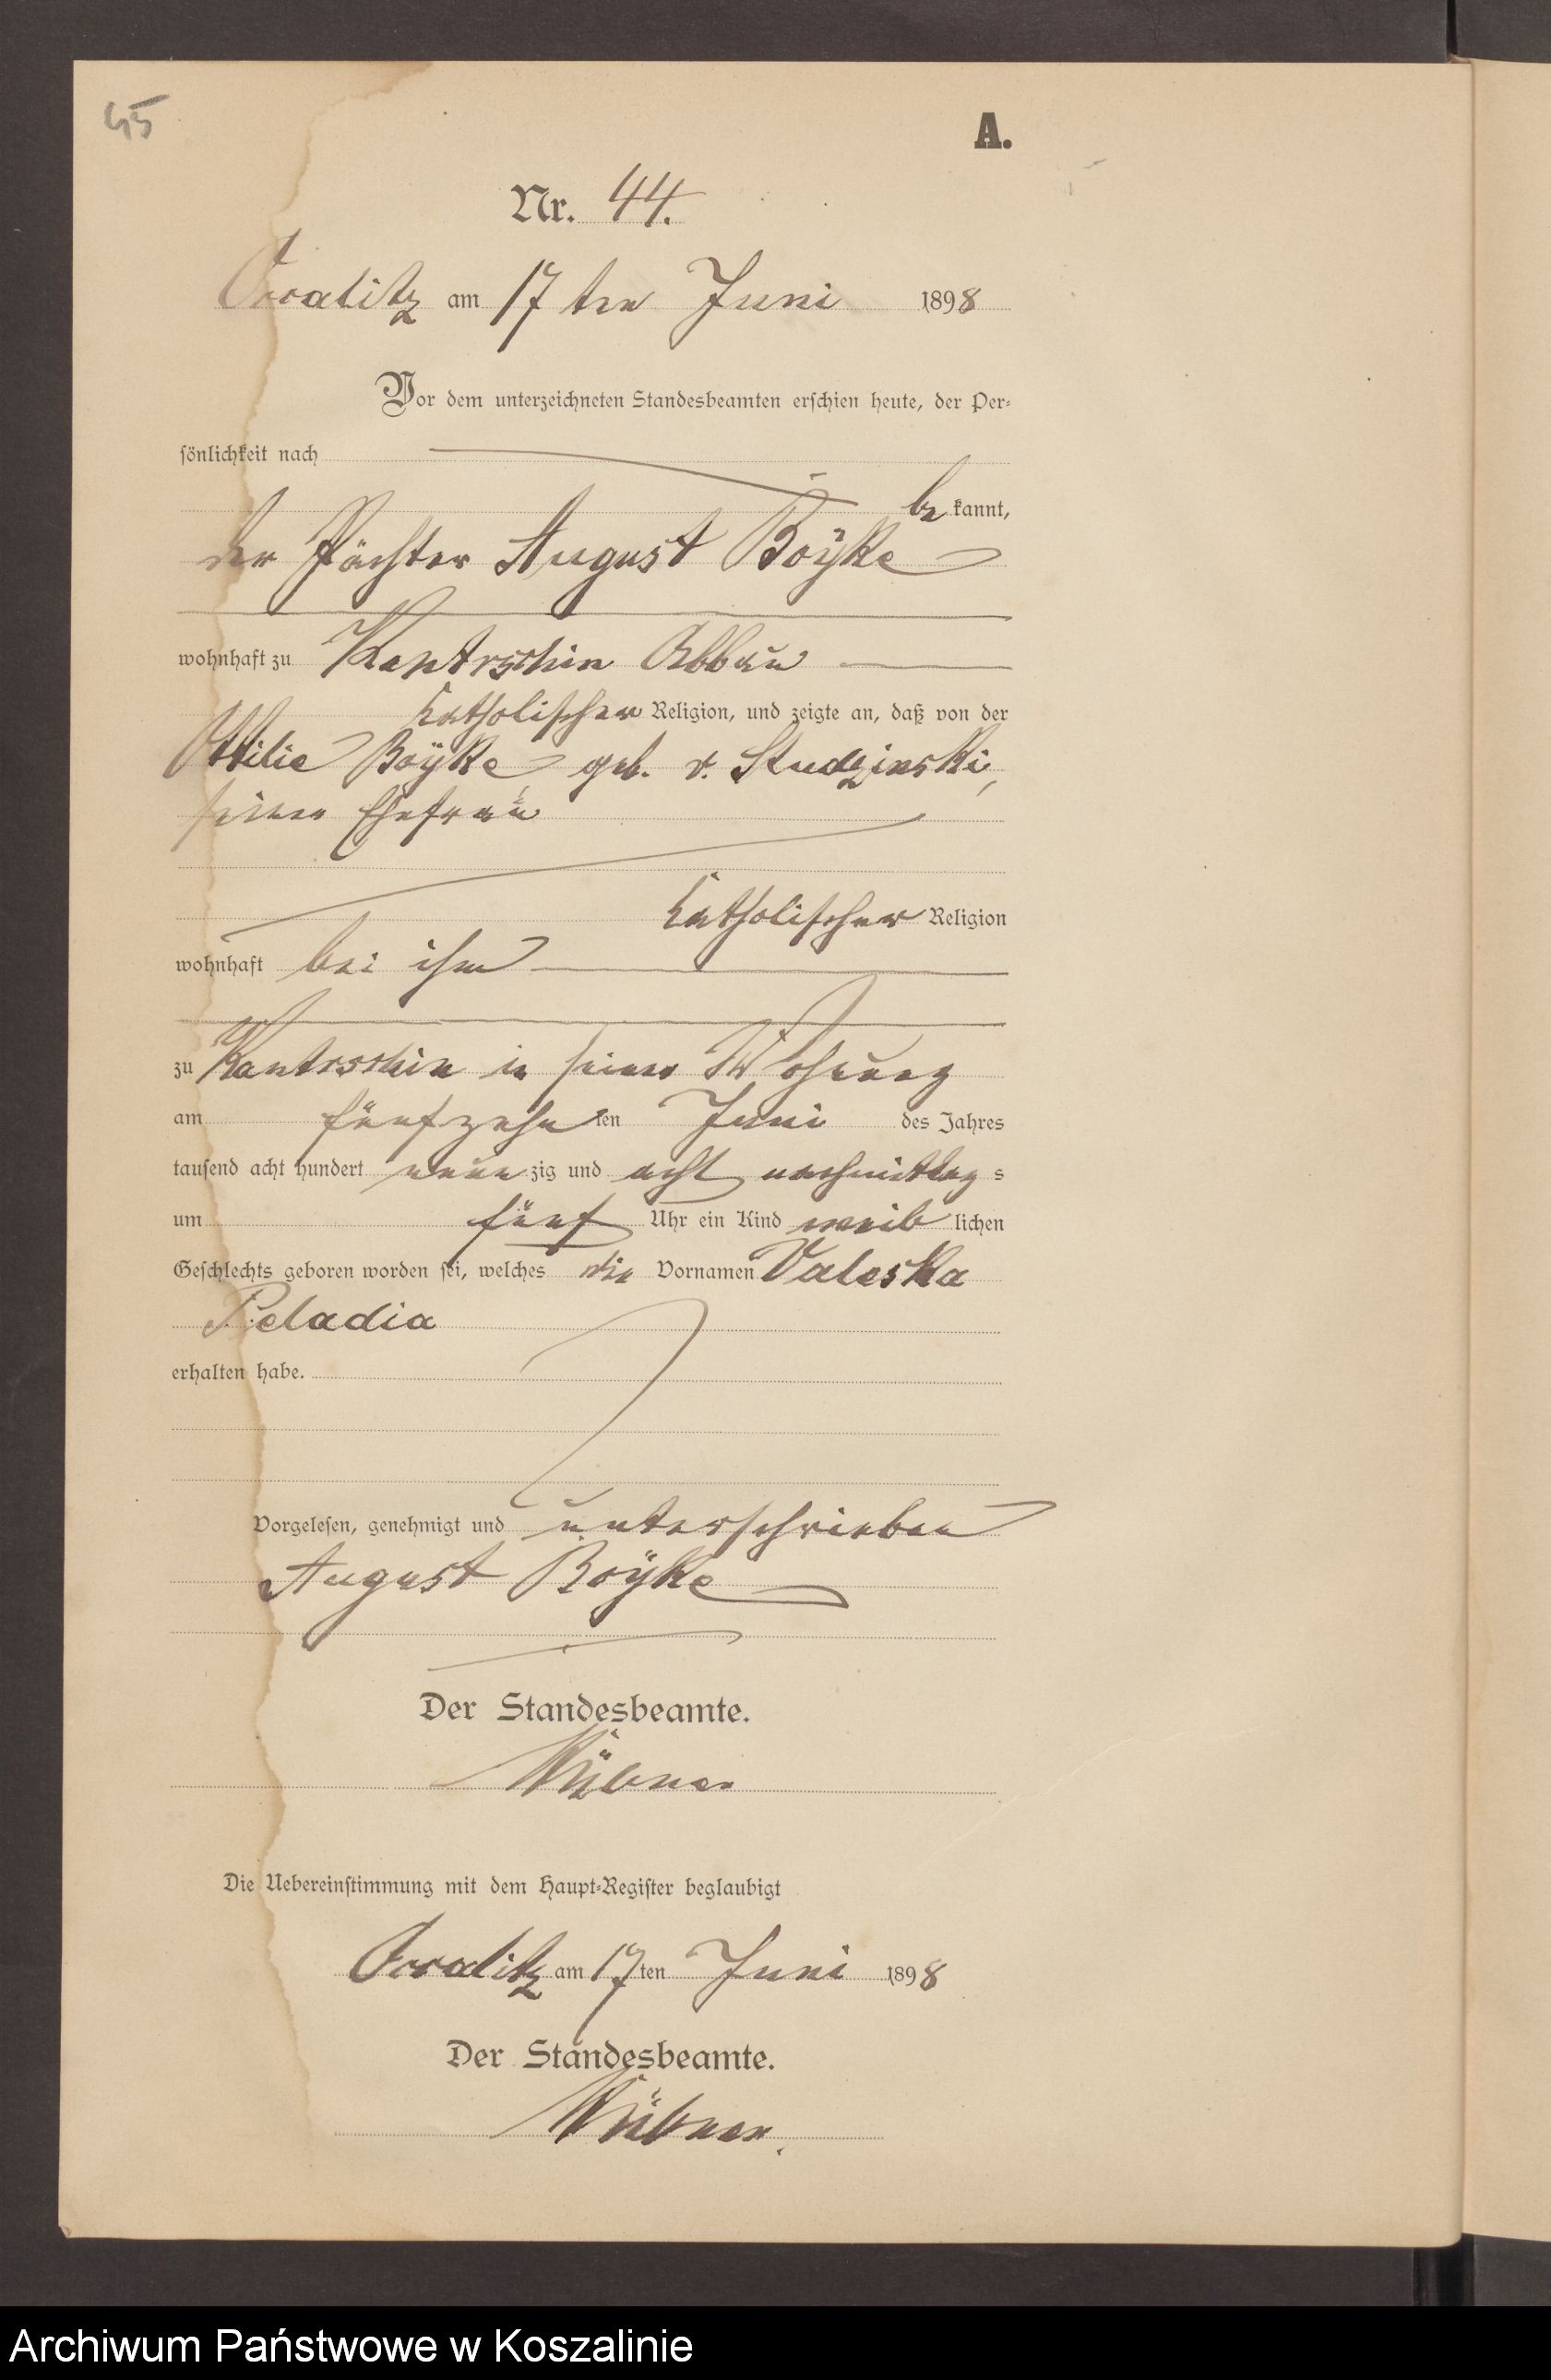 45
A.
Nr. 44.
am 17 ten Juni 1898
Vor dem unterzeichneten Standesbeamten erschien heute, der Per-
sönlichkeit nach
be kannt,
der Pächter August Boÿke
wohnhaft zu Kantrschin Abbau
katholischer Religion, und zeigte an, daß von der
Ottilie Boÿke geb. v. Studzinski,
seiner Ehefrau
katholischer Religion
wohnhaft bei ihm
zu Kantrschin in seiner Wohnung
am fünfzehn ten Juni des Jahres
tausend acht hundert neun zig und acht nachmittag s
um fünf Uhr ein Kind weib lichen
Geschlechts geboren worden sei, welches die Vornamen Valeska
erhalten habe.
Vorgelesen, genehmigt und unterschrieben
August Boÿke
Der Standesbeamte.
Die Uebereinstimmung mit dem Haupt-Register beglaubigt
am 17 ten Juni 1898
Der Standesbeamte.
Archiwum Państwowe w Koszalinie